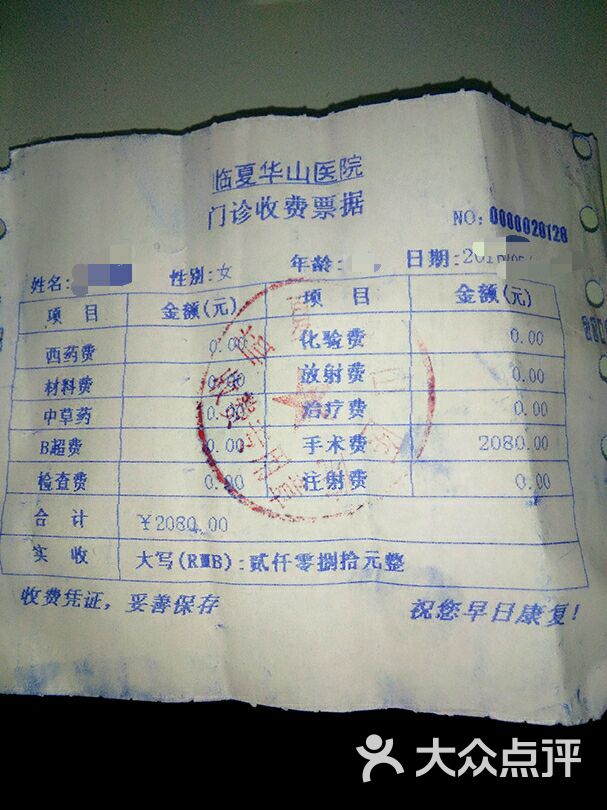 临夏华山医院
门诊收费票据
NO: 0000020128
姓名: 性别: 女 年龄: 日期: 201
项 目 金额(元) 项 目 金额(元)
西药费 0.00 化验费 0.00
材料费 0.00 放射费 0.00
中草药 0.00 治疗费 0.00
B超费 0.00 手术费 2080.00
检查费 0.00 注射费 0.00
合 计 ¥2080.00
实 收 大写(RMB): 贰仟零捌拾元整
收费凭证，妥善保存 祝您早日康复!
大众点评